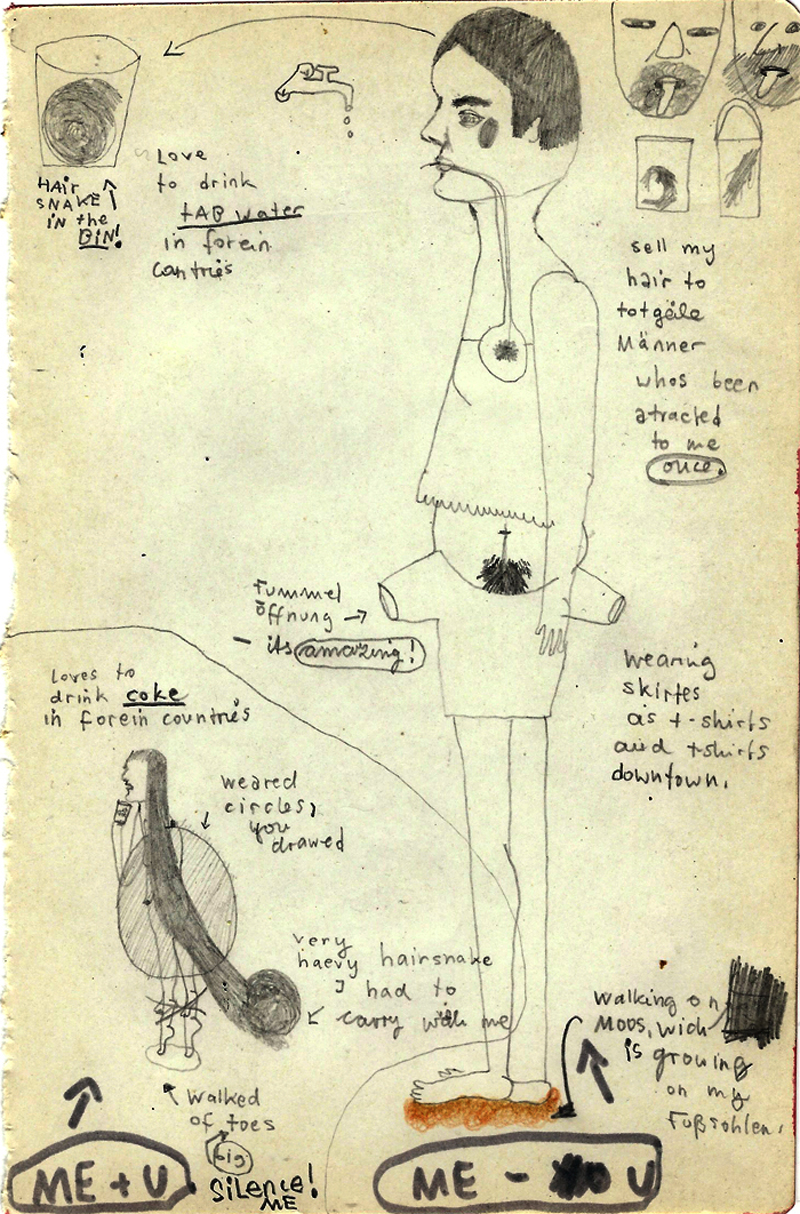 HAir
SNAKE
iN the
BIN!
Love
to drink
tAB water
in forein
cantries
sell my
hair to
totgeile
Männer
whos been
atracted
to me
once.
Fummel
öffnung →
– its amazing!
wearing
skirtes
as t-shirts
and t-shirts
downtown.
loves to
drink coke
in forein countries
weared
circles,
you
drawed
very
haevy hairsnake
I had to
carry with me
walking on
Moos, wich
is growing
on my
Fußsohlen.
walked
of toes
big
Silence!
ME
ME + U
ME - U